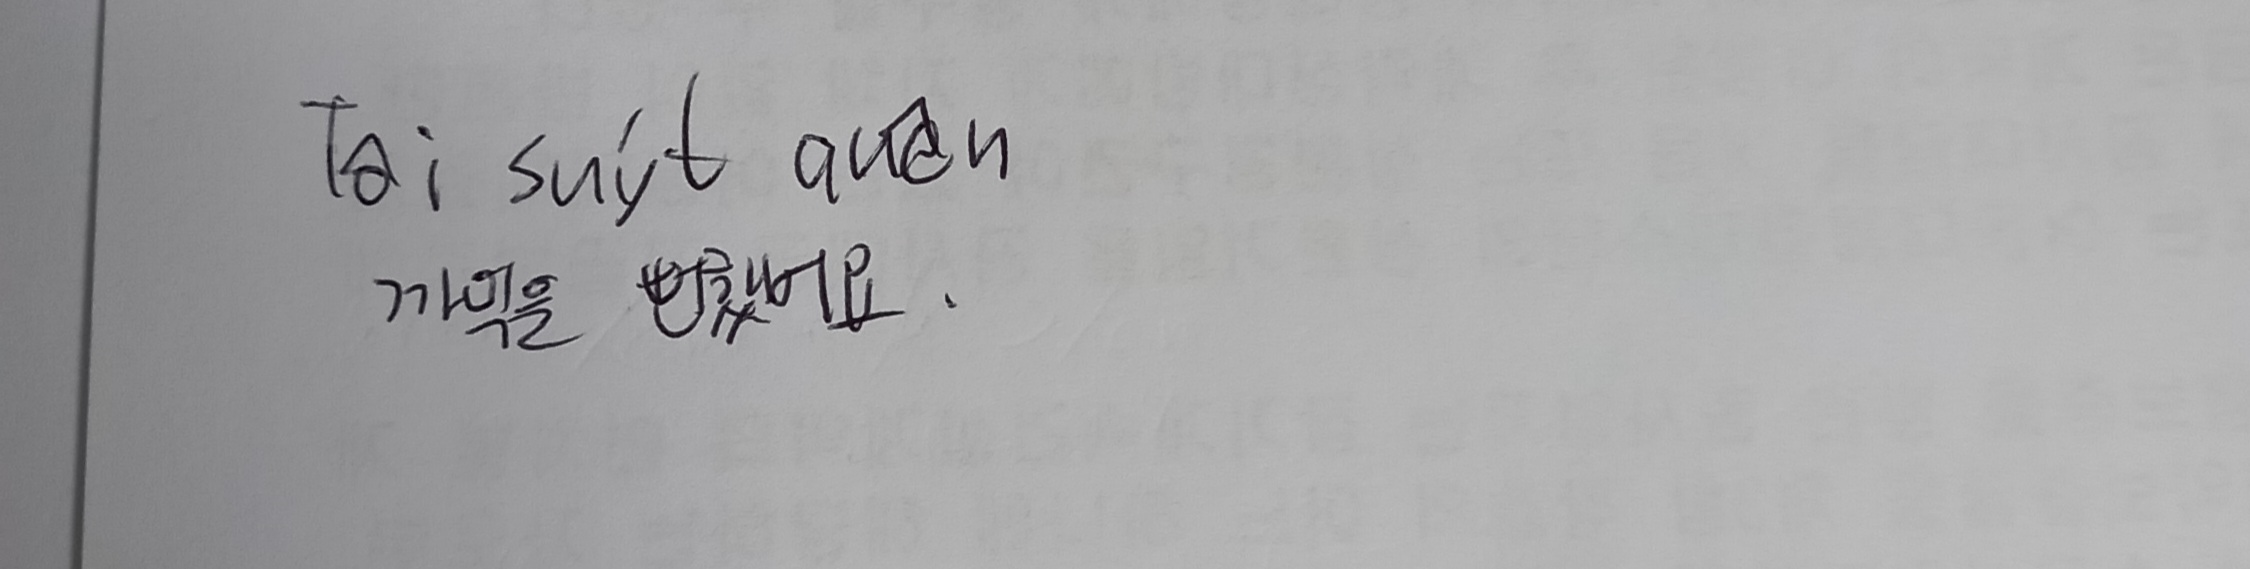 Tôi suýt quên
까먹을 뻔했어요.